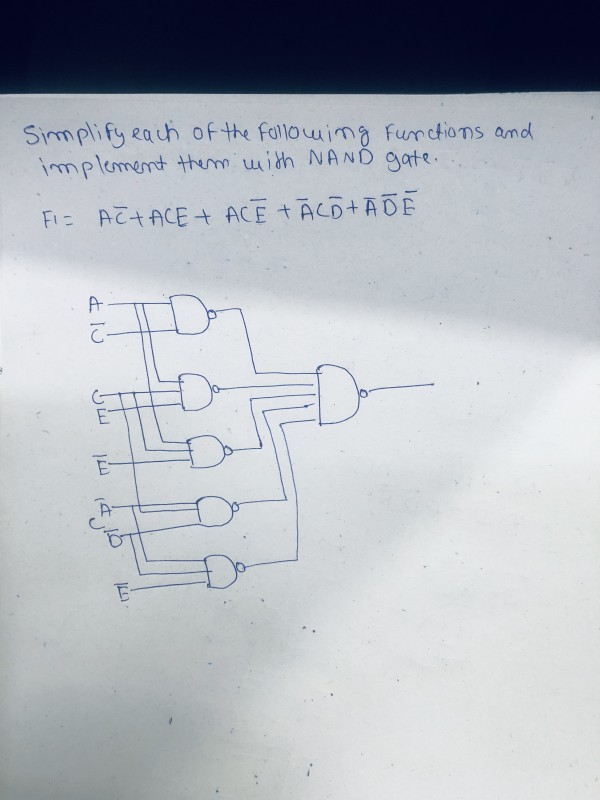 Simplify each of the following functions and
implement them with NAND gate.
F1 = AC̅ + ACE + ACE̅ + A̅CD̅ + A̅D̅E̅
A
C̅
C
E
E̅
A̅
C
D̅
E̅